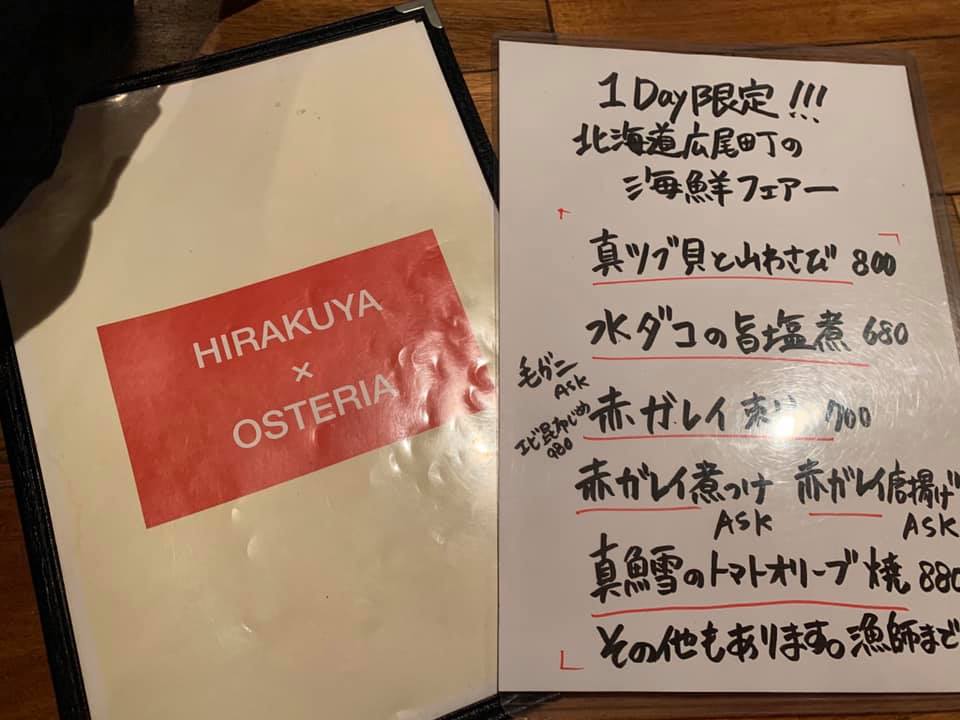 HIRAKUYA
×
OSTERIA
1Day限定!!!
北海道広尾町の
海鮮フェアー
真ツブ貝と山わさび 800
水ダコの旨塩煮 680
毛ガニ
ASK
赤ガレイ 700
エビ昆布じめ
980
赤ガレイ煮つけ 赤ガレイ唐揚げ
ASK ASK
真鱈のトマトオリーブ焼 880
その他もあります。漁師まで